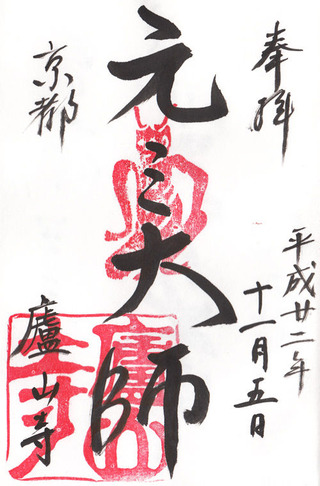 奉拝
平成廿二年
十一月五日
元三大師
京都
廬山寺
廬山寺